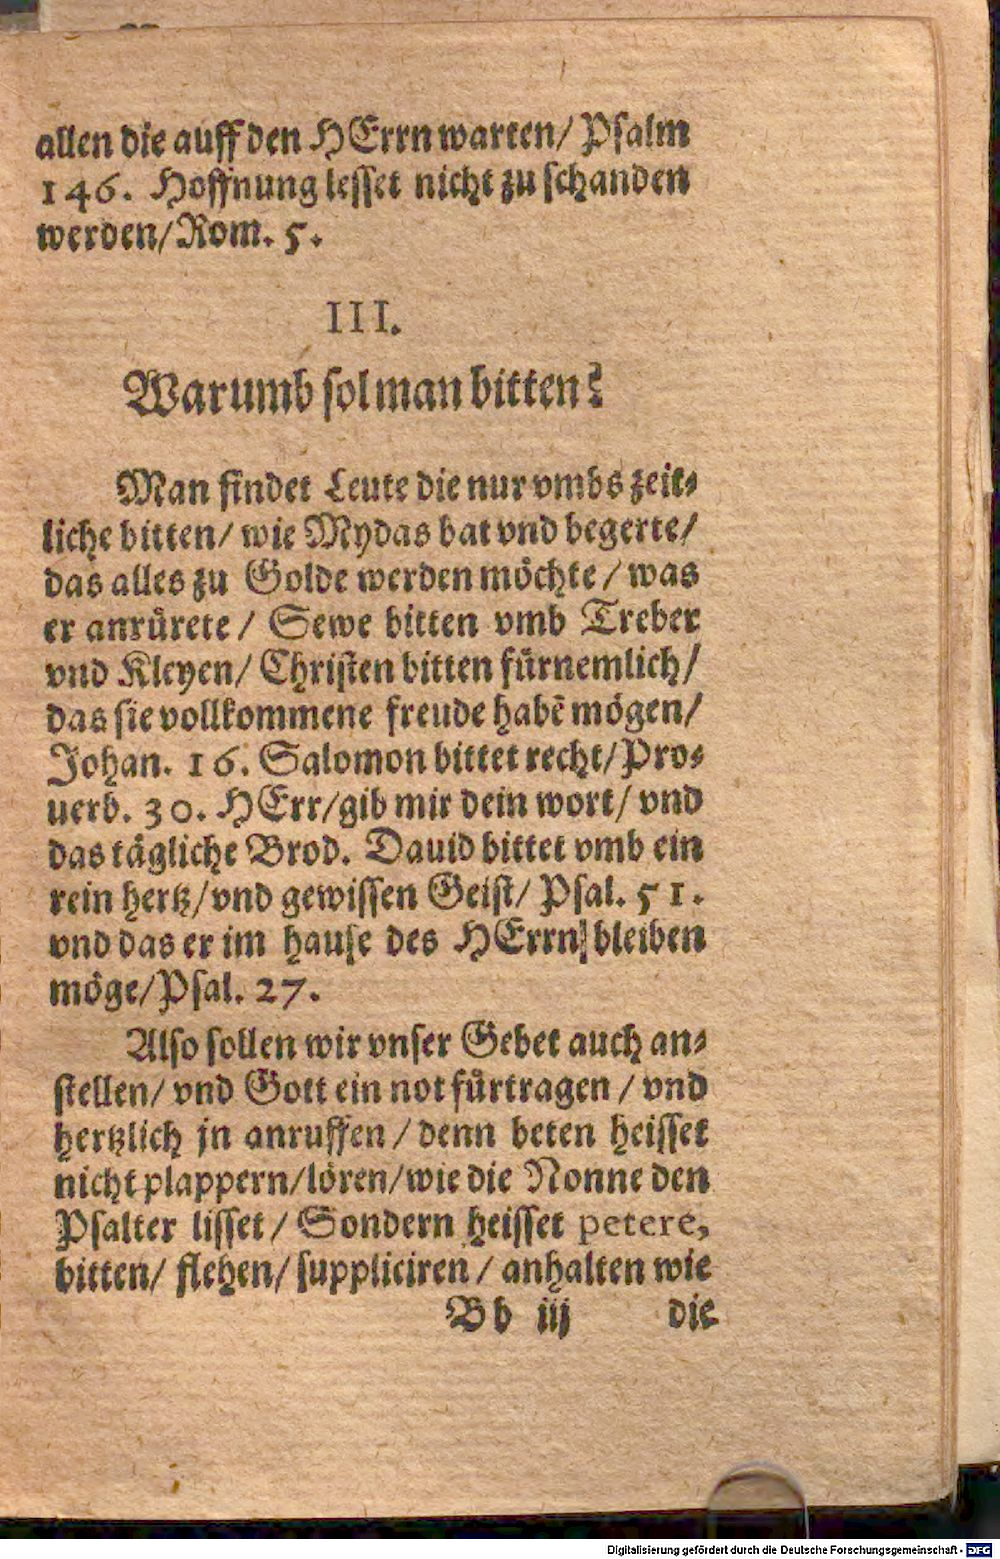 allen die auff den HErrn warten/ Psalm
146. Hoffnung lesset nicht zu schanden
werden/ Rom. 5.
III.
Warumb sol man bitten?
Man findet Leute die nur vmbs zeit-
liche bitten/ wie Mydas bat vnd begerte/
das alles zu Golde werden möchte/ was
er anrürete/ Sewe bitten vmb Treber
vnd Kleyen/ Christen bitten fürnemlich/
das sie vollkommene freude habē mögen/
Johan. 16. Salomon bittet recht/ Pro-
uerb. 30. HErr/ gib mir dein wort/ vnd
das tägliche Brod. Dauid bittet vmb ein
rein hertz/ vnd gewissen Geist/ Psal. 51.
vnd das er im hause des HErrn bleiben
möge/ Psal. 27.
Also sollen wir vnser Gebet auch an-
stellen/ vnd Gott ein not fürtragen/ vnd
hertzlich jn anruffen/ denn beten heisset
nicht plappern/ lören/ wie die Nonne den
Psalter lisset/ Sondern heisset petere,
bitten/ flehen/ suppliciren/ anhalten wie
Bb iij die
Digitalisierung gefördert durch die Deutsche Forschungsgemeinschaft - DFG